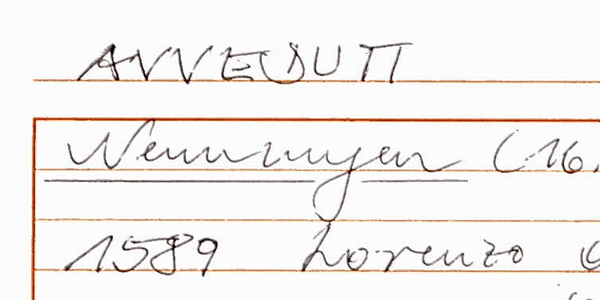 ANNEDUTT
Wemmingen (16
1589 Lorenzo